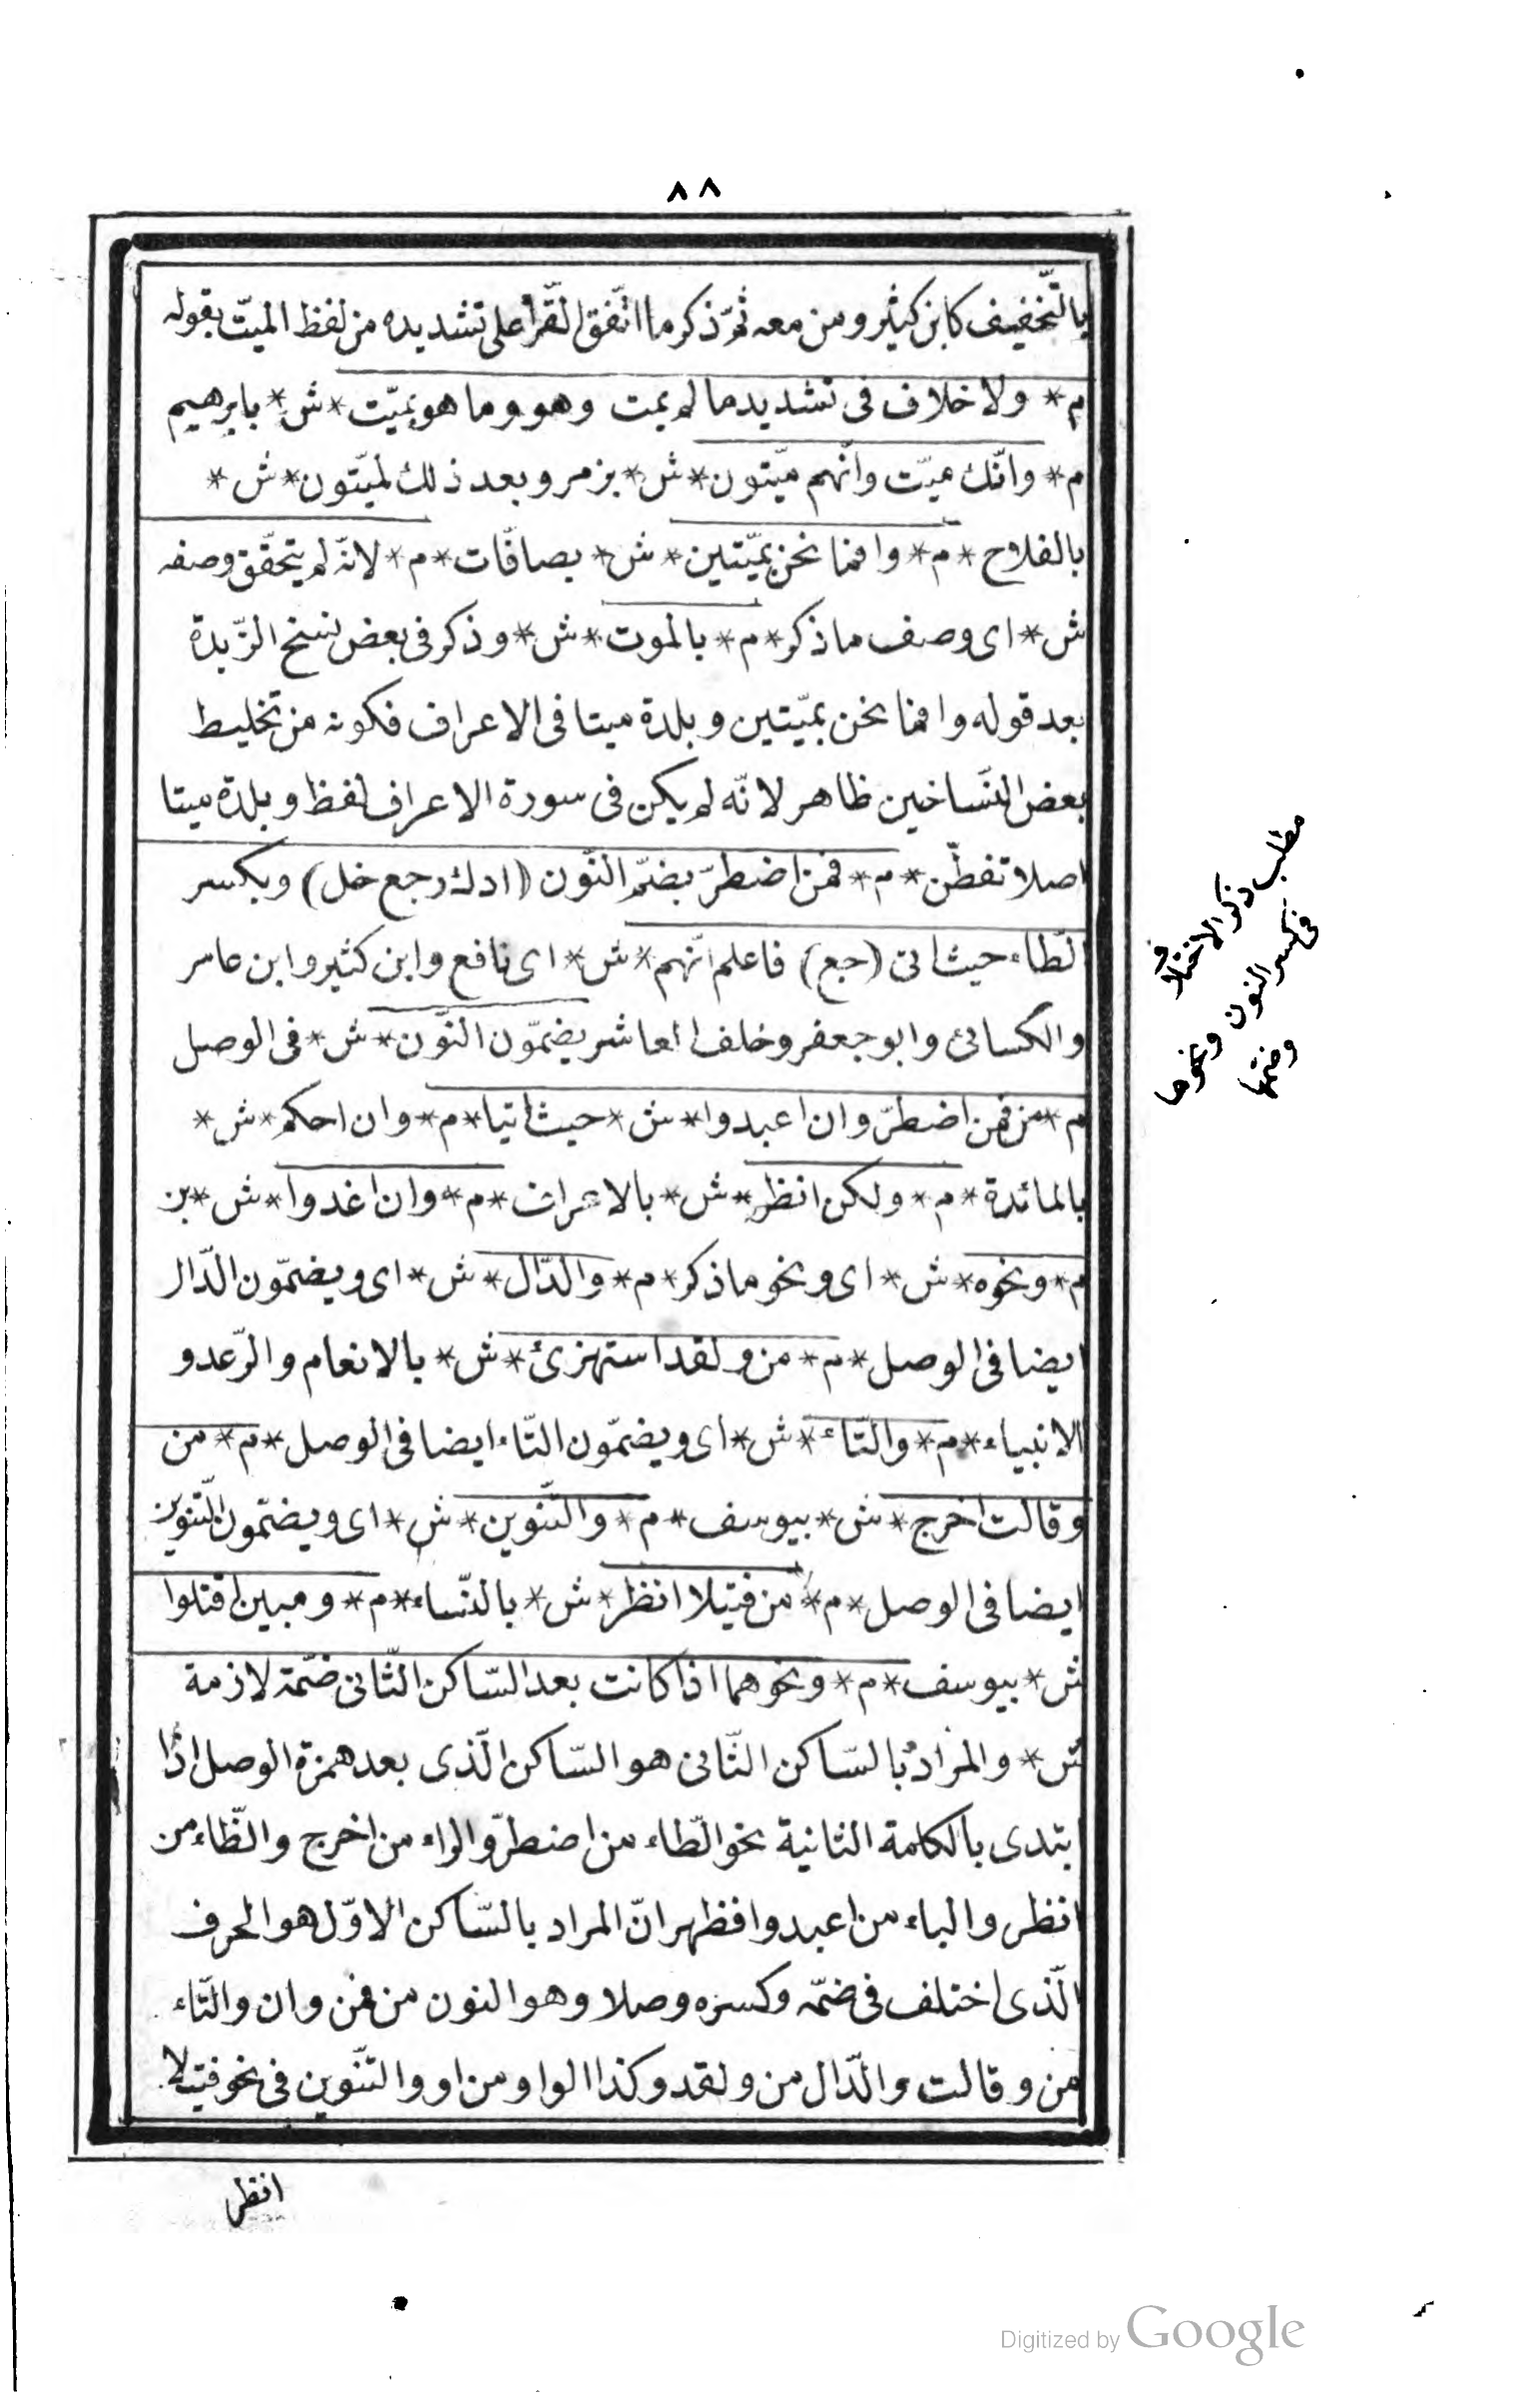 ٨٨
بالتّخفيف كابن كثير ومن معه ثمّ ذكر ما اتّفق القرّاء على تشديده من لفظ الميّت بقوله
م * ولا خلاف فى تشديد ما لم يمت وهو وما هو بميّت * ش * بابرهيم
م * وانّك ميّت وانّهم ميّتون * ش * بزمر وبعد ذلك لميّتون * ش *
بالفلاح * م * وافما نحن بميّتين * ش * بصافّات * م * لانّه لم يتحقّق وصفه
ش * اى وصف ما ذكر * م * بالموت * ش * وذكر فى بعض نسخ الزّبدة
بعد قوله وافما نحن بميّتين وبلدة ميتا فى الاعراف فكونه من تخليط
بعض النّساخين ظاهر لانّه لم يكن فى سورة الاعراف لفظ وبلدة ميتا
اصلا تفطّن * م * فمن اضطرّ بضمّ النّون (ادك رجع خل) وبكسر
الطّاء حيث اتى (جع) فاعلم انّهم * ش * اى نافع وابن كثير وابن عامر
والكسائى وابو جعفر وخلف العاشر يضمّون النّون * ش * فى الوصل
م * من فمن اضطرّ وان اعبدوا * ش * حيث اتيا * م * وان احكم * ش *
بالمائدة * م * ولكن انظر * ش * بالاعراف * م * وان اغدوا * ش * بن
م * ونحوه * ش * اى ونحو ما ذكر * م * والدّال * ش * اى ويضمّون الدّال
ايضا فى الوصل * م * من ولقد استهزئ * ش * بالانعام والرّعد و
الانبياء * م * والتّاء * ش * اى ويضمّون التّاء ايضا فى الوصل * م * من
وقالت اخرج * ش * بيوسف * م * والتّنوين * ش * اى ويضمّون التّنوين
ايضا فى الوصل * م * من فتيلا انظر * ش * بالنّساء * م * ومبين اقتلوا
ش * بيوسف * م * ونحوهما اذا كانت بعد السّاكن الثّانى ضمّة لازمة
ش * والمراد بالسّاكن الثّانى هو السّاكن الّذى بعد همزة الوصل اذا
ابتدى بالكلمة الثانية نحو الطّاء من اضطرّ والراء من اخرج والظّاء من
انظر والباء من اعبدوا فظهر انّ المراد بالسّاكن الاوّل هو الحرف
الّذى اختلف فى ضمّه وكسره وصلا وهو النون من فمن وان والتّاء
من وقالت والدّال من ولقد وكذا الواو من او والتّنوين فى نحو فتيلا
انظر
مطلب ذكر الاختلاف
فى كسر النون ونحوها
وضمّها
Digitized by Google